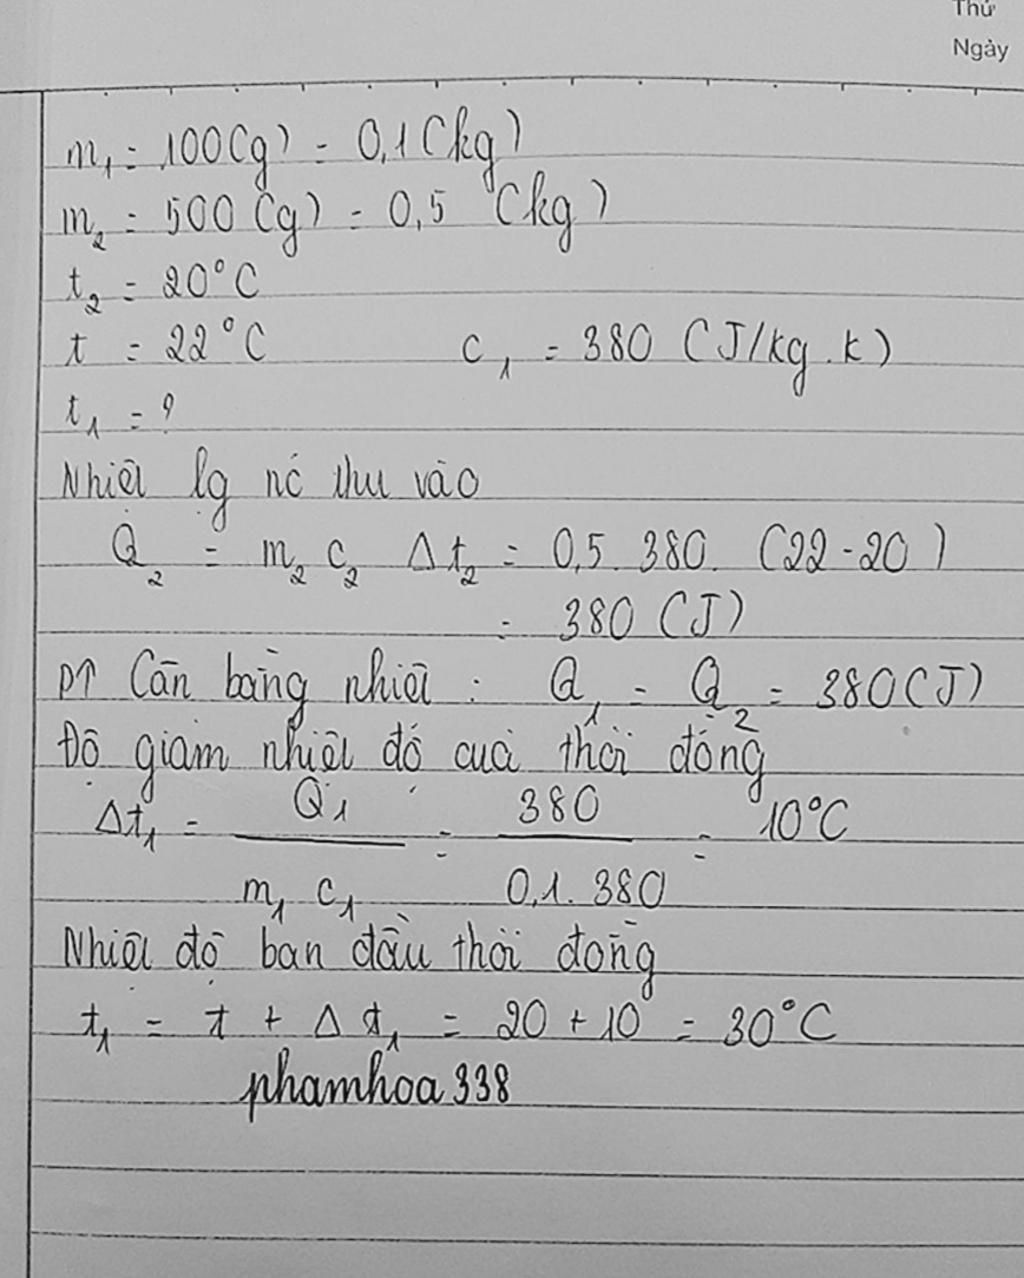 Thứ
Ngày
m₁ = 100(g) = 0,1(kg)
m₂ = 500(g) = 0,5 (kg)
t₂ = 20°C
t = 22°C c₁ = 380 (J/kg.k)
t₁ = ?
Nhiệt lg nc thu vào
Q₂ = m₂ c₂ Δt₂ = 0,5. 380. (22-20)
= 380 (J)
PT Cân bằng nhiệt : Q₁ = Q₂ = 380(J)
Độ giảm nhiệt độ của thỏi đồng
Δt₁ = Q₁ / m₁ c₁ = 380 / 0,1. 380 = 10°C
Nhiệt độ ban đầu thỏi đồng
t₁ = t + Δt₁ = 20 + 10 = 30°C
phamhoa338